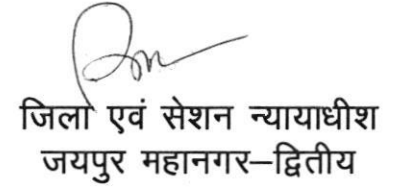 जिला एवं सेशन न्यायाधीश
जयपुर महानगर–द्वितीय